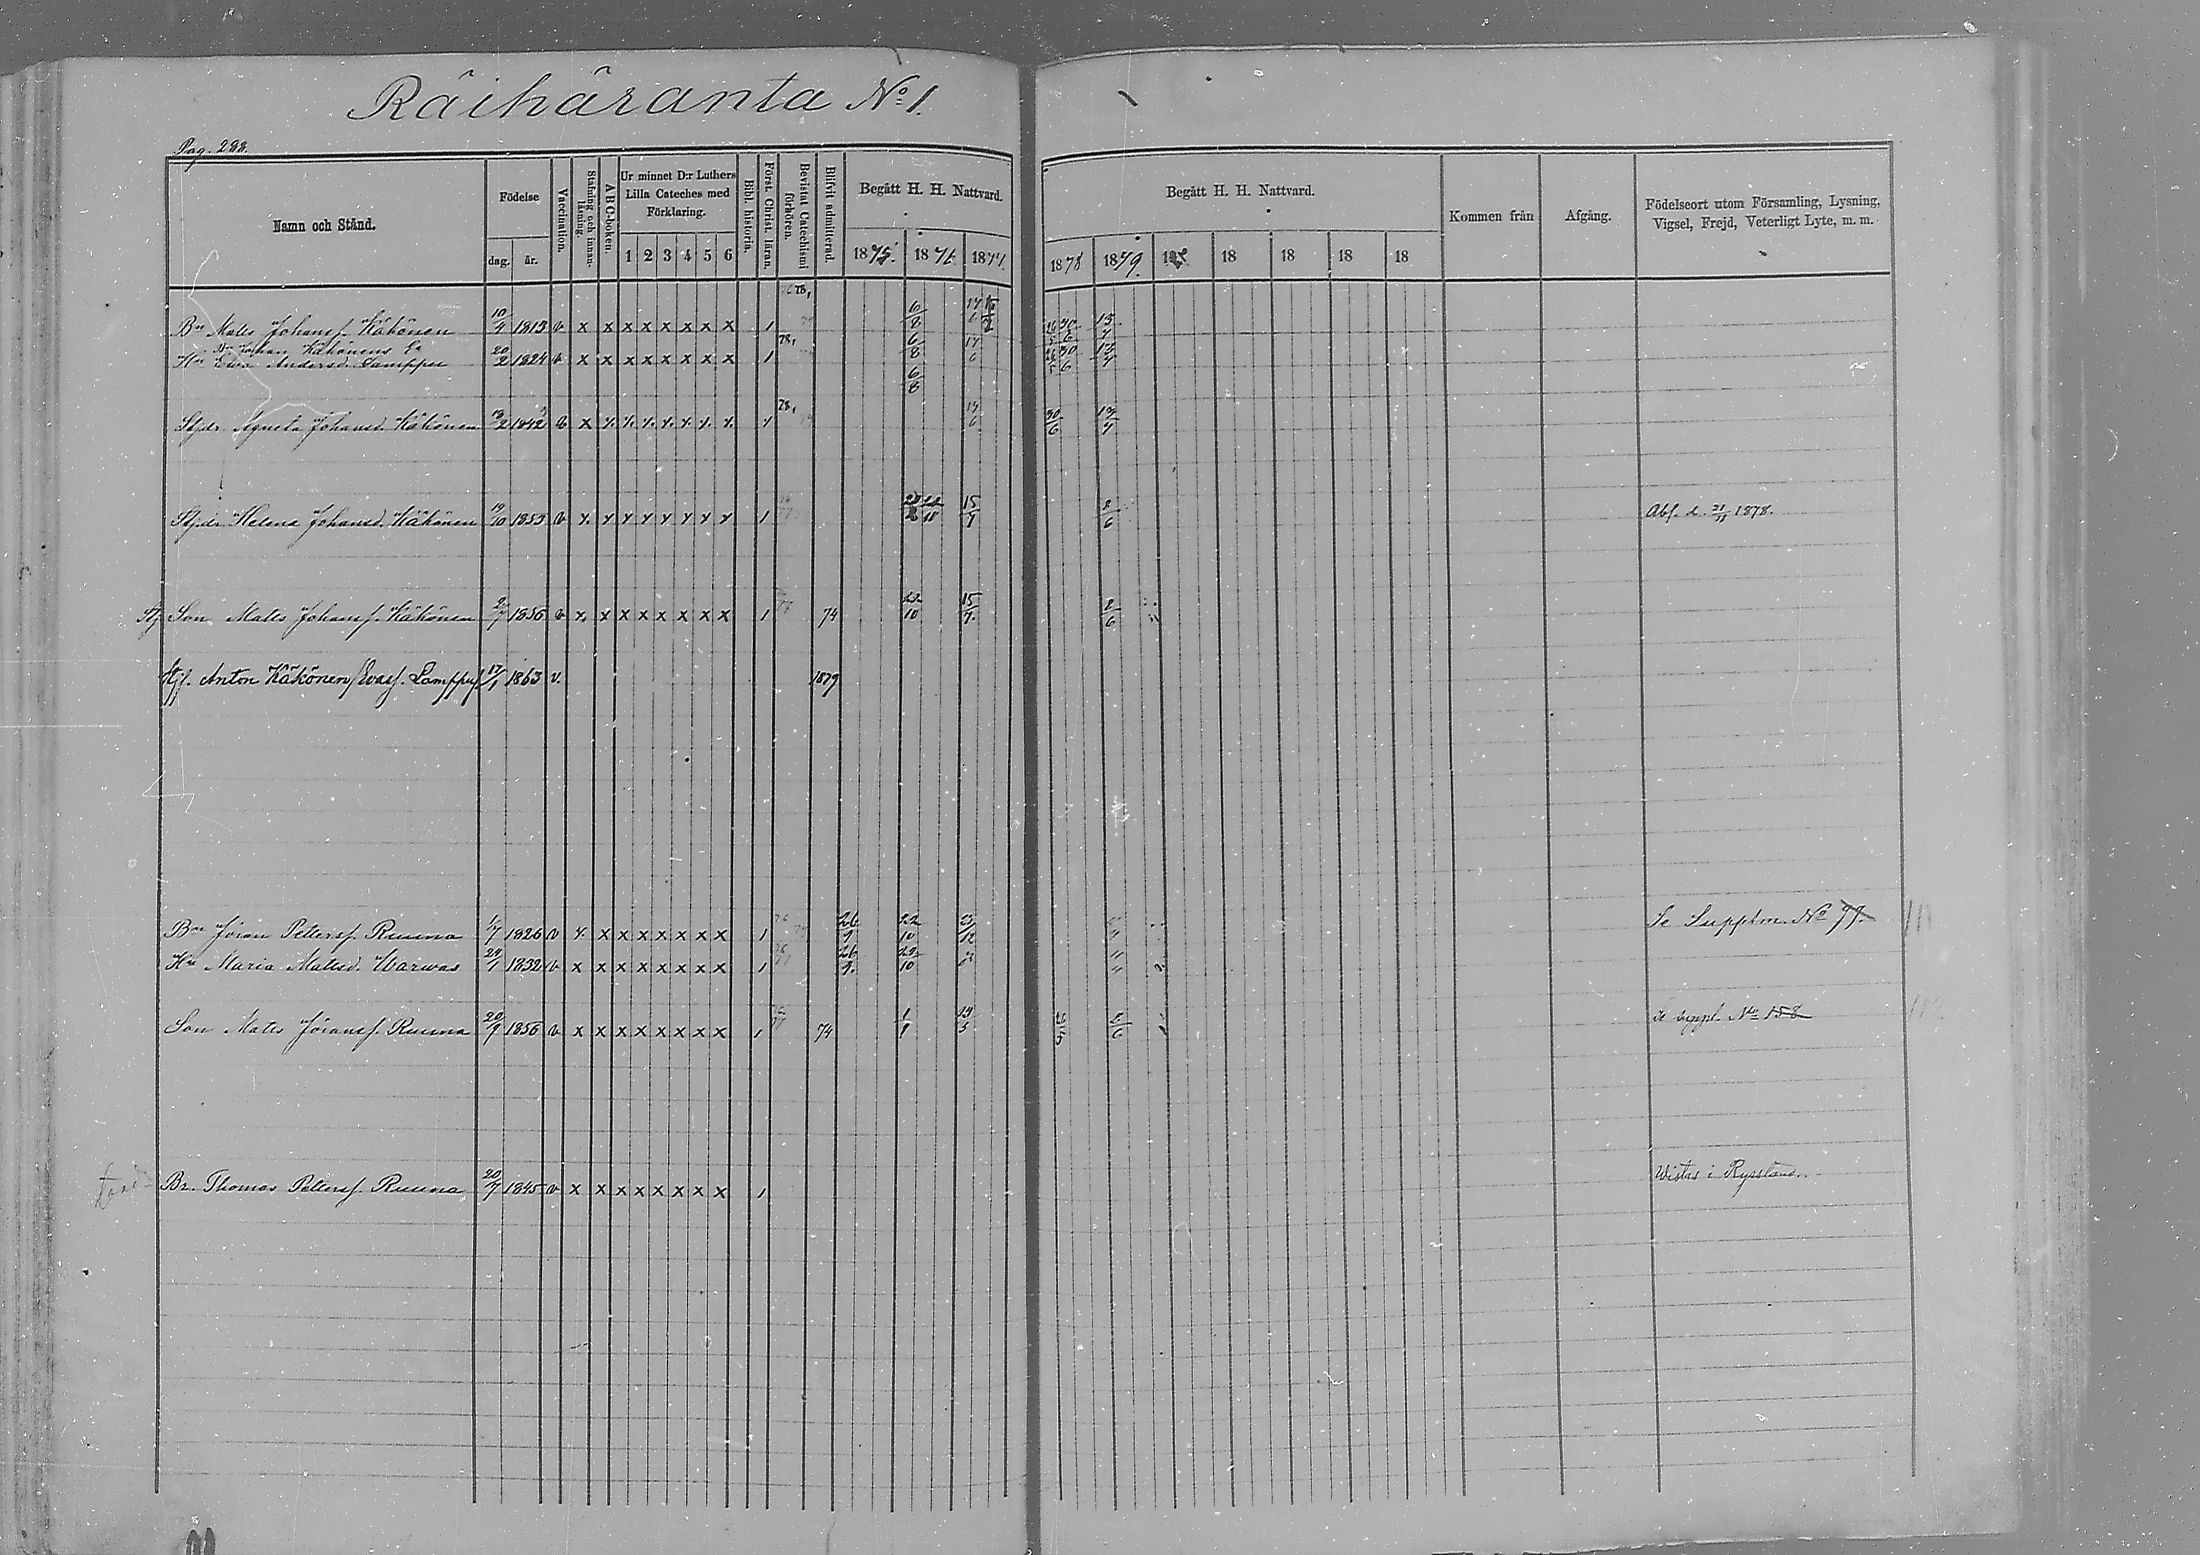 Räihäranta No 1.
Pag. 288.
Namn och Stånd.
Födelse
dag. år.
Vaccination.
Stafning och innanläsning.
A B C-boken.
Ur minnet D:r Luthers Lilla Cateches med Förklaring.
1 2 3 4 5 6
Bibl. historia.
Först. Christ. läran.
Bevistat Catechismi förhören.
Blifvit admitterad.
Begått H. H. Nattvard.
1875. 1876. 1877.
Begått H. H. Nattvard.
1878 1879. 18 18 18 18
Kommen från
Afgång.
Födelseort utom Församling, Lysning, Vigsel, Frejd, Veterligt Lyte, m. m.
Bn Matts Johansf. Käkönen 10/4 1813 v x x x x x x x x 1 6/8 17/6 26/5 30/6 13/7
Johan Käkönens Ea
Hu Ewa Andersd. Lamppu 20/2 1824 v x x x x x x x x 1 78, 6/8 17/6 26/5 30/6 13/7
6/8
Stjdr. Agneta Johansd. Käkönen 1842 v x x x x x x x x 1 78, 30/6 13/7
Stjdr. Helena Johansd. Käkönen 19/10 1853 v x x x x x x x x 1 15/7 8/6 Abf. d. 21/11 1878.
Stj. Son Matts Johansf. Käkönen 1856 v x x x x x x x x 1 74 22/10 15/7. 8/6
Stjf. Anton Käkönen/Evasf. Lamppu/ 17/1 1863 v. 1879
Bn Jöran Pettersf. Ruuna 1/7 1826 v x x x x x x x x 1 26/9 22/10 Se Supplm. No 77.
Hu Maria Mattsd. Warwas 24/1 1832 v x x x x x x x x 1 26/9. 22/10
Son Matts Jöransf. Ruuna 20/9 1856 v x x x x x x x x 1 74 1/1 8/6 se suppl. No 158 112
Br. Thomas Pettersf. Ruuna 20/7 1845 v x x x x x x x x 1 Wistas i Ryssland.